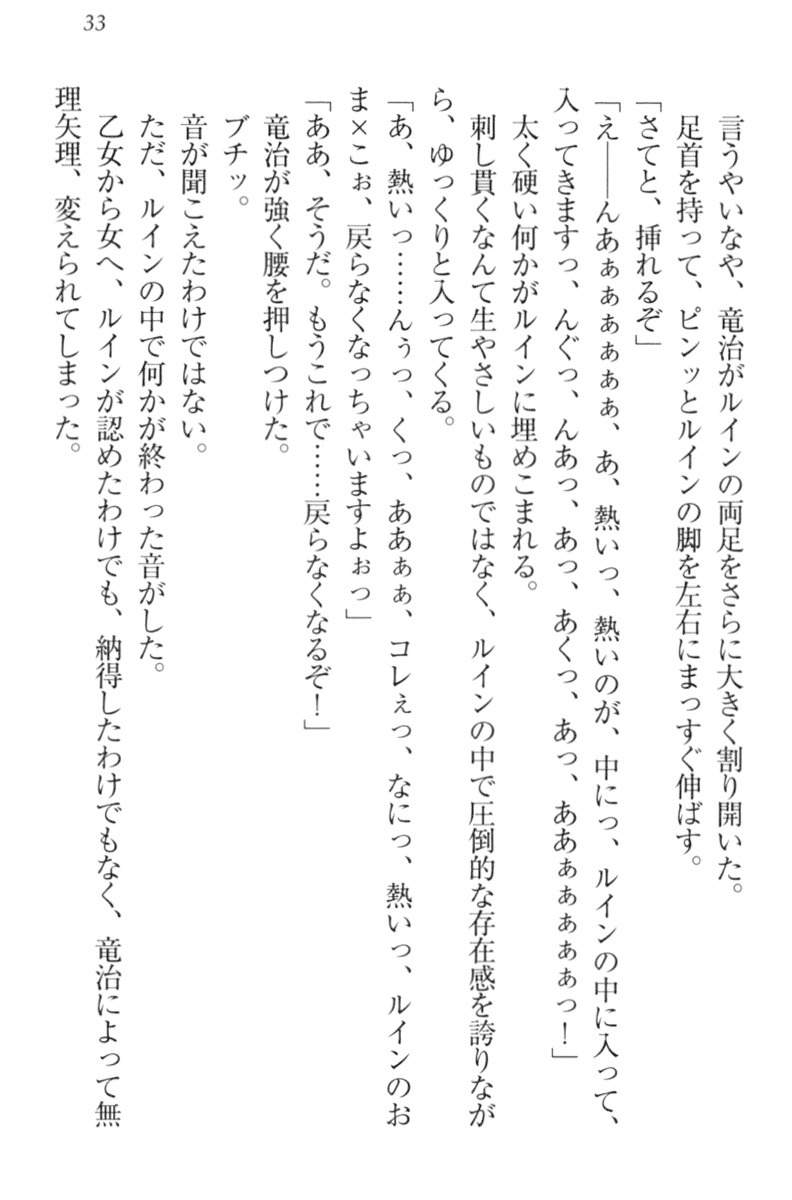 33
言うやいなや、竜治がルインの両足をさらに大きく割り開いた。
足首を持って、ピンッとルインの脚を左右にまっすぐ伸ばす。
「さてと、挿れるぞ」
「え――んあぁぁぁぁぁぁ、あ、熱いっ、熱いのが、中にっ、ルインの中に入って、
入ってきますっ、んぐっ、んあっ、あっ、あくっ、あっ、ああぁぁぁぁぁっ！」
太く硬い何かがルインに埋めこまれる。
刺し貫くなんて生やさしいものではなく、ルインの中で圧倒的な存在感を誇りなが
ら、ゆっくりと入ってくる。
「あ、熱いっ……んぅっ、くっ、ああぁぁ、コレぇっ、なにっ、熱いっ、ルインのお
ま×こぉ、戻らなくなっちゃいますよぉっ」
「ああ、そうだ。もうこれで……戻らなくなるぞ！」
竜治が強く腰を押しつけた。
ブチッ。
音が聞こえたわけではない。
ただ、ルインの中で何かが終わった音がした。
乙女から女へ、ルインが認めたわけでも、納得したわけでもなく、竜治によって無
理矢理、変えられてしまった。